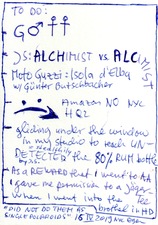 TO DO:
G♂☥☥
)S: ALCHIMIST VS. ALCHI
MIST
Moto Guzzi: Isola d'Elba
w/ Günter Butschbacher
AMAZON NO NYC
HQ2
gliding under the window
in my studio to teach UN-
DETECTED the 80% RUM bottle
AS A REWARD that I went to AA
I gave me permission to a Jäger-
Tee
When I went into the
brothel in HD
"DID NOT DO THEM AS
SINGLE POLAROIDS" 16